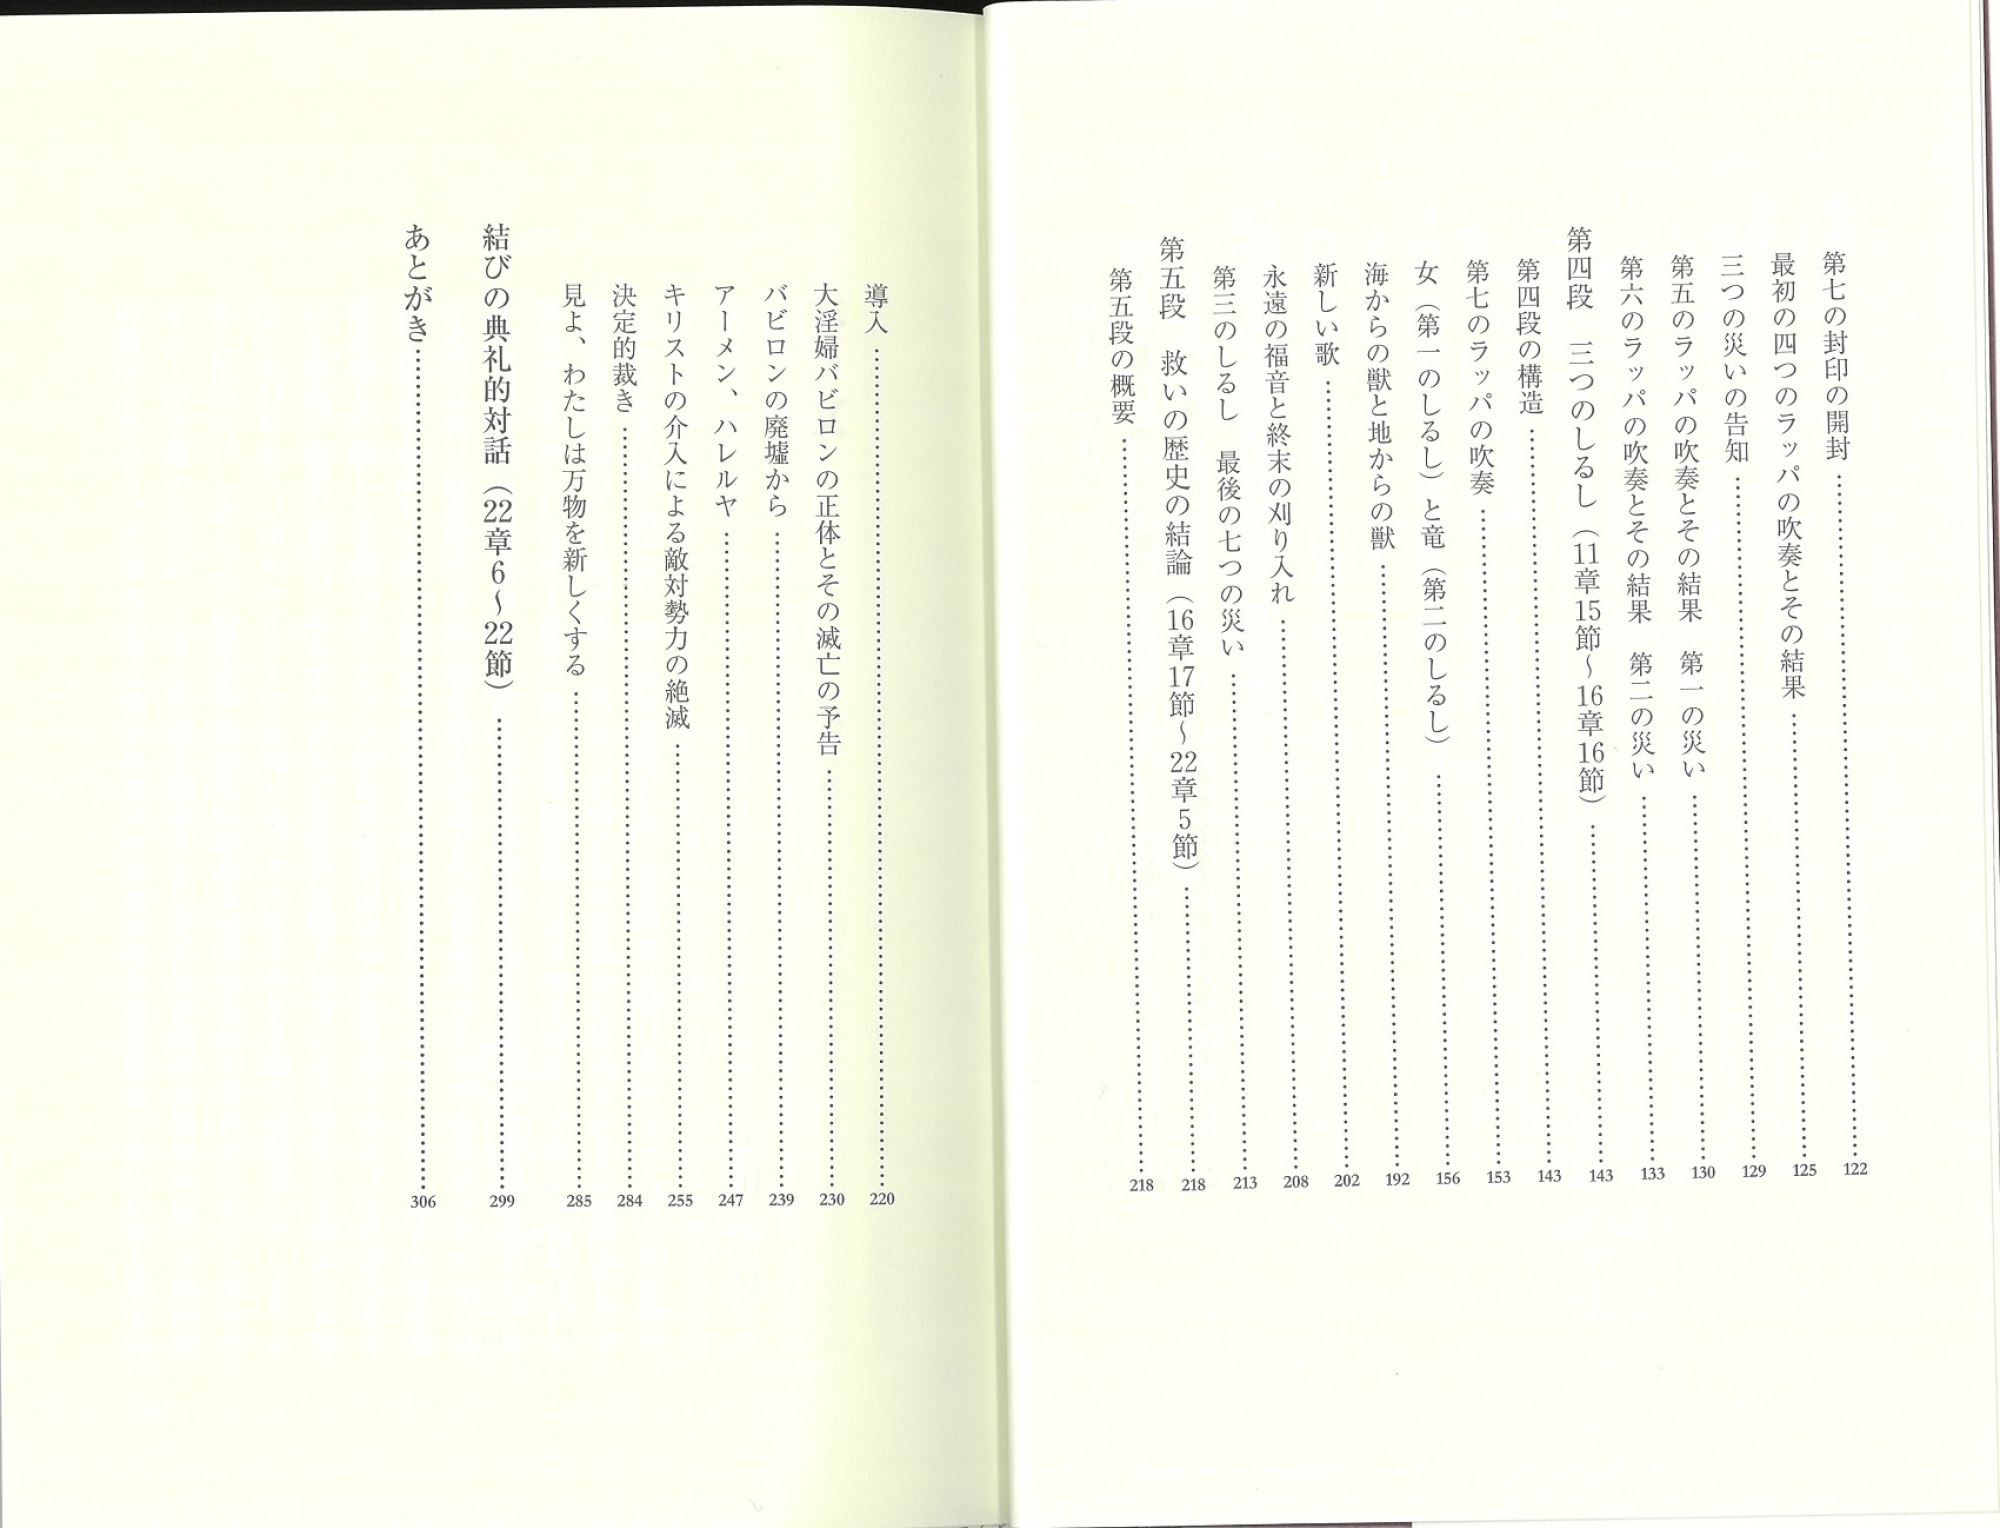 第七の封印の開封……122
最初の四つのラッパの吹奏とその結果……125
三つの災いの告知……129
第五のラッパの吹奏とその結果　第一の災い……130
第六のラッパの吹奏とその結果　第二の災い……133
第四段　三つのしるし（11章15節～16章16節）……143
第四段の構造……143
第七のラッパの吹奏……153
女（第一のしるし）と竜（第二のしるし）……156
海からの獣と地からの獣……192
新しい歌……202
永遠の福音と終末の刈り入れ……208
第三のしるし　最後の七つの災い……213
第五段　救いの歴史の結論（16章17節～22章5節）……218
第五段の概要……218
導入……220
大淫婦バビロンの正体とその滅亡の予告……230
バビロンの廃墟から……239
アーメン、ハレルヤ……247
キリストの介入による敵対勢力の絶滅……255
決定的裁き……284
見よ、わたしは万物を新しくする……285
結びの典礼的対話（22章6～22節）……299
あとがき……306